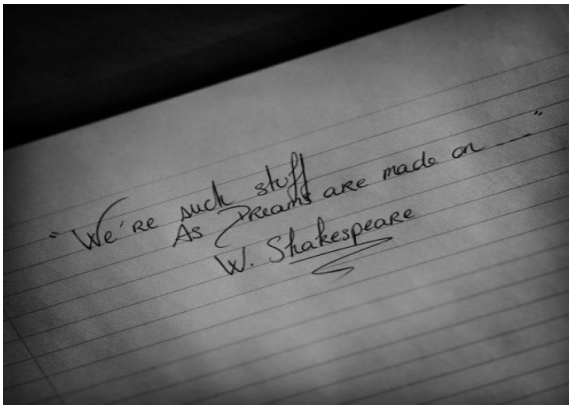 "We're such stuff
As Dreams are made on ----"
W. Shakespeare